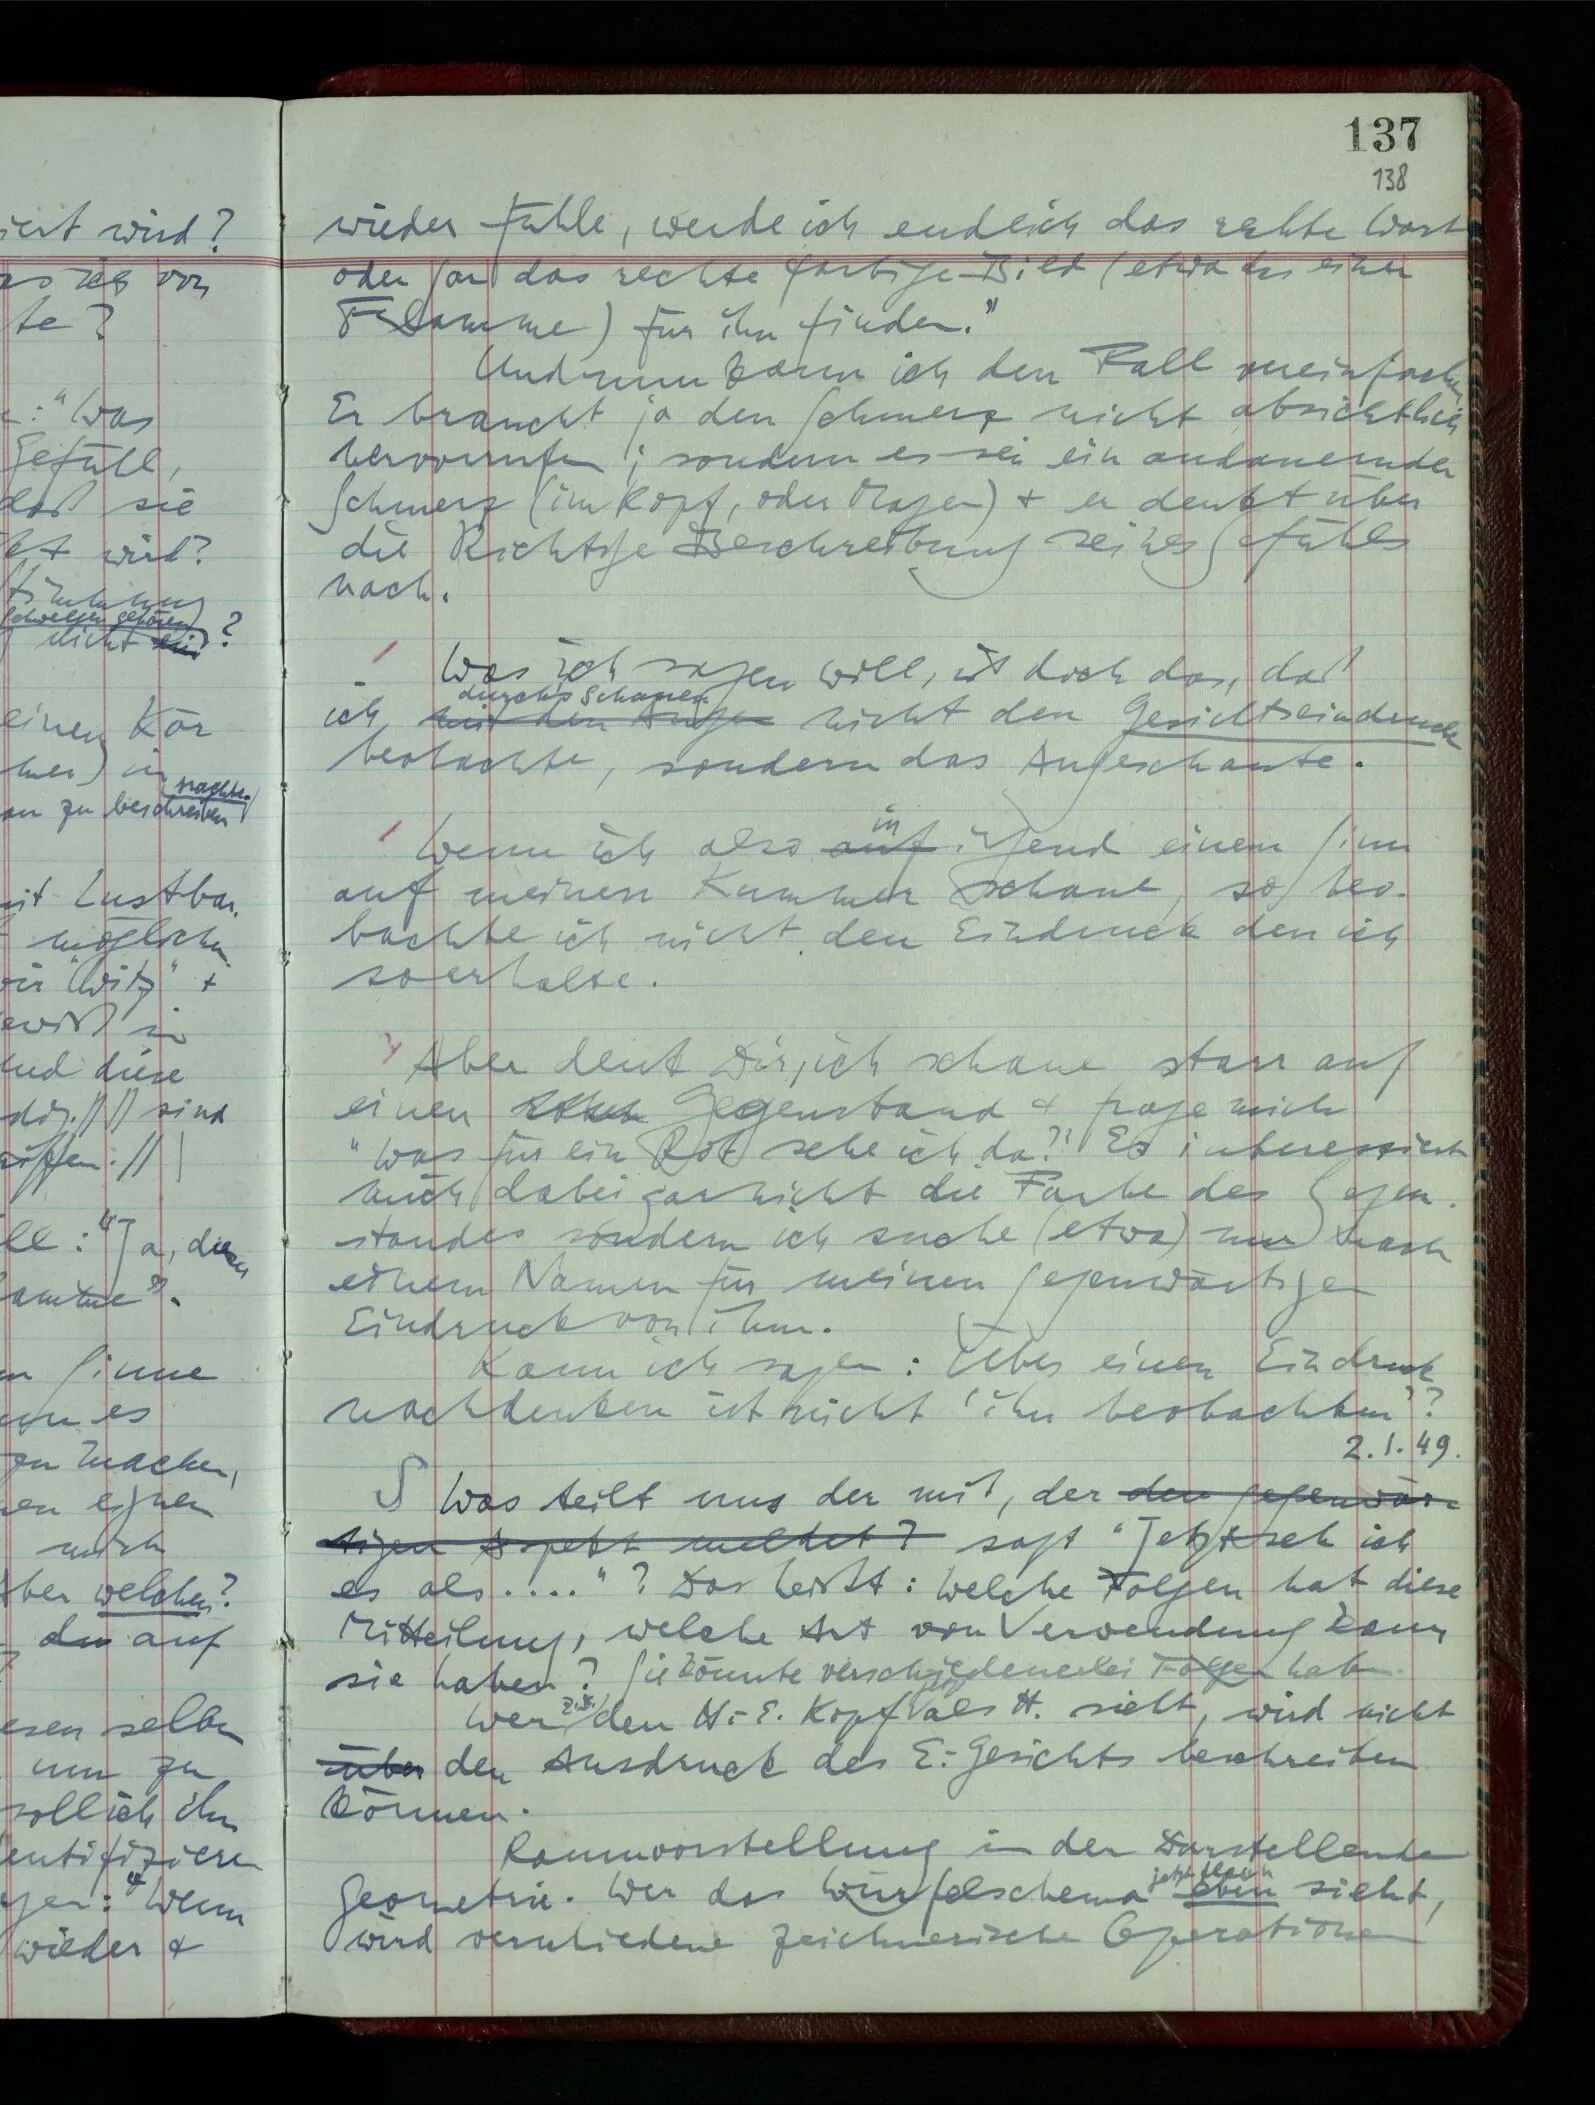 137
138
iert wird?
von
te?
: "Was
Gefühl,
daß sie
wird?
Stimmung
Schwelgen gehören
nicht ein?
einen Kör
in
trachte.
an zu beschreiben
mit Lustbar.
möglichen
"Witz" +
gewiß in
und diese
sind
greifen. //|
: "Ja, dieser
Flamme".
Sinne
es
zu machen,
eignen
mich
Aber welchen?
du auf
selbst
nun zu
soll ich ihn
identifizieren
: "Wenn
wieder +
wieder fühle, werde ich endlich das rechte Wort
oder gar das rechte farbige Bild (etwa das einer
Flamme) für ihn finden."
Und nun kann ich den Fall vereinfachen
Er braucht ja den Schmerz nicht absichtlich
hervorrufen; sondern es sei ein andauernder
Schmerz (im Kopf, oder Magen) + er denkt über
die Richtige Beschreibung seines Gefühls
nach.
/ Was ich sagen will, ist doch das, daß
durch's Schauen
ich mit den Augen nicht den Gesichtseindruck
beobachte, sondern das Angeschaute.
in
/ Wenn ich also auf irgend einen Sinn
auf meinen Kummer schaue, so beo-
bachte ich nicht den Eindruck den ich
so erhalte.
Aber denk Dir, ich schaue starr auf
einen roten Gegenstand + frage mich
"Was für ein Rot sehe ich da?" Es interessiert
mich dabei garnicht die Farbe des Gegen-
standes sondern ich suche (etwa) nur nach
einem Namen für meinen gegenwärtigen
Eindruck von ihm.
Kann ich sagen: Über einen Eindruck
nachdenken ist nicht 'ihn beobachten'?
2.1.49.
S Was teilt uns der mit, der den gegenwär-
tigen Aspekt meldet? sagt "Jetzt seh ich
es als ...."? Das heißt: Welche Folgen hat diese
Mitteilung, welche Art von Verwendung kann
sie haben? Sie könnte verschiedenerlei Folgen haben.
z.B. jetzt
Wer den H.-E. Kopf als H. sieht, wird nicht
über den Ausdruck des E.-Gesichts beschreiben
können.
Raumvorstellung in der Darstellenden
jetzt flach
Geometrie. Wer das Würfelschema eben sieht,
wird verschiedene zeichnerische Operationen